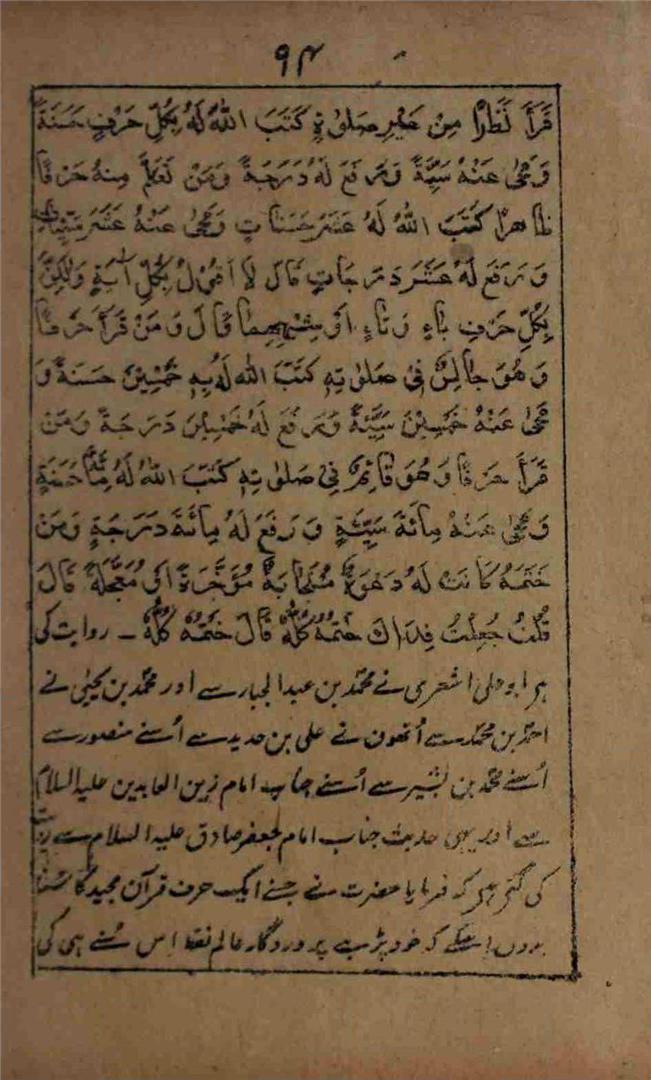 ۹۴
قَرَأَ نَظَرًا مِنْ غَيْرِ صَلٰوةٍ كَتَبَ اللّٰهُ لَهُ بِكُلِّ حَرْفٍ حَسَنَةً
وَمَحٰى عَنْهُ سَيِّئَةً وَرَفَعَ لَهُ دَرَجَةً وَمَنْ تَعَلَّمَ مِنْهُ حَرْفًا
ظَاهِرًا كَتَبَ اللّٰهُ لَهُ عَشْرَ حَسَنَاتٍ وَمَحٰى عَنْهُ عَشْرَ سَيِّئَاتٍ
وَرَفَعَ لَهُ عَشْرَ دَرَجَاتٍ قَالَ لَا أَقُوْلُ بِكُلِّ اٰيَةٍ وَلٰكِنْ
بِكُلِّ حَرْفٍ بَاءٍ وَتَاءٍ اَوْ شِبْهِهِمَا قَالَ وَمَنْ قَرَأَ حَرْفًا
وَهُوَ جَالِسٌ فِيْ صَلٰوتِهٖ كَتَبَ اللّٰهُ لَهُ بِهٖ خَمْسِيْنَ حَسَنَةً وَ
مَحٰى عَنْهُ خَمْسِيْنَ سَيِّئَةً وَرَفَعَ لَهُ خَمْسِيْنَ دَرَجَةً وَمَنْ
قَرَأَ حَرْفًا وَهُوَ قَائِمٌ فِيْ صَلٰوتِهٖ كَتَبَ اللّٰهُ لَهُ مِائَةَ حَسَنَةٍ
وَمَحٰى عَنْهُ مِائَةَ سَيِّئَةٍ وَرَفَعَ لَهُ مِائَةَ دَرَجَةٍ وَمَنْ
خَتَمَهُ كَانَتْ لَهُ دَعْوَةٌ مُسْتَجَابَةٌ مُؤَخَّرَةً اَوْ مُعَجَّلَةً قَالَ
قُلْتُ جُعِلْتُ فِدَاكَ خَتَمَهُ كُلَّهُ قَالَ خَتَمَهُ كُلَّهُ ۔ روایت کی
ہر ابو علی اشعری نے محمد بن عبد الجبار سے اور محمد بن یحیٰی نے
احمد بن محمد سے اُنھون نے علی بن حدید سے اُسنے منصور سے
اُسنے محمد بن بشیر سے اُسنے جناب امام زین العابدین علیہ السلام
سے اور یہی حدیث جناب امام جعفر صادق علیہ السلام سے
کی گئی ہی کہ فرمایا حضرت نے جسنے ایک حرف قرآن مجید کا سنا
بدون اسکے کہ خود پڑہے پروردگار عالم فقط اس سُننے ہی کی